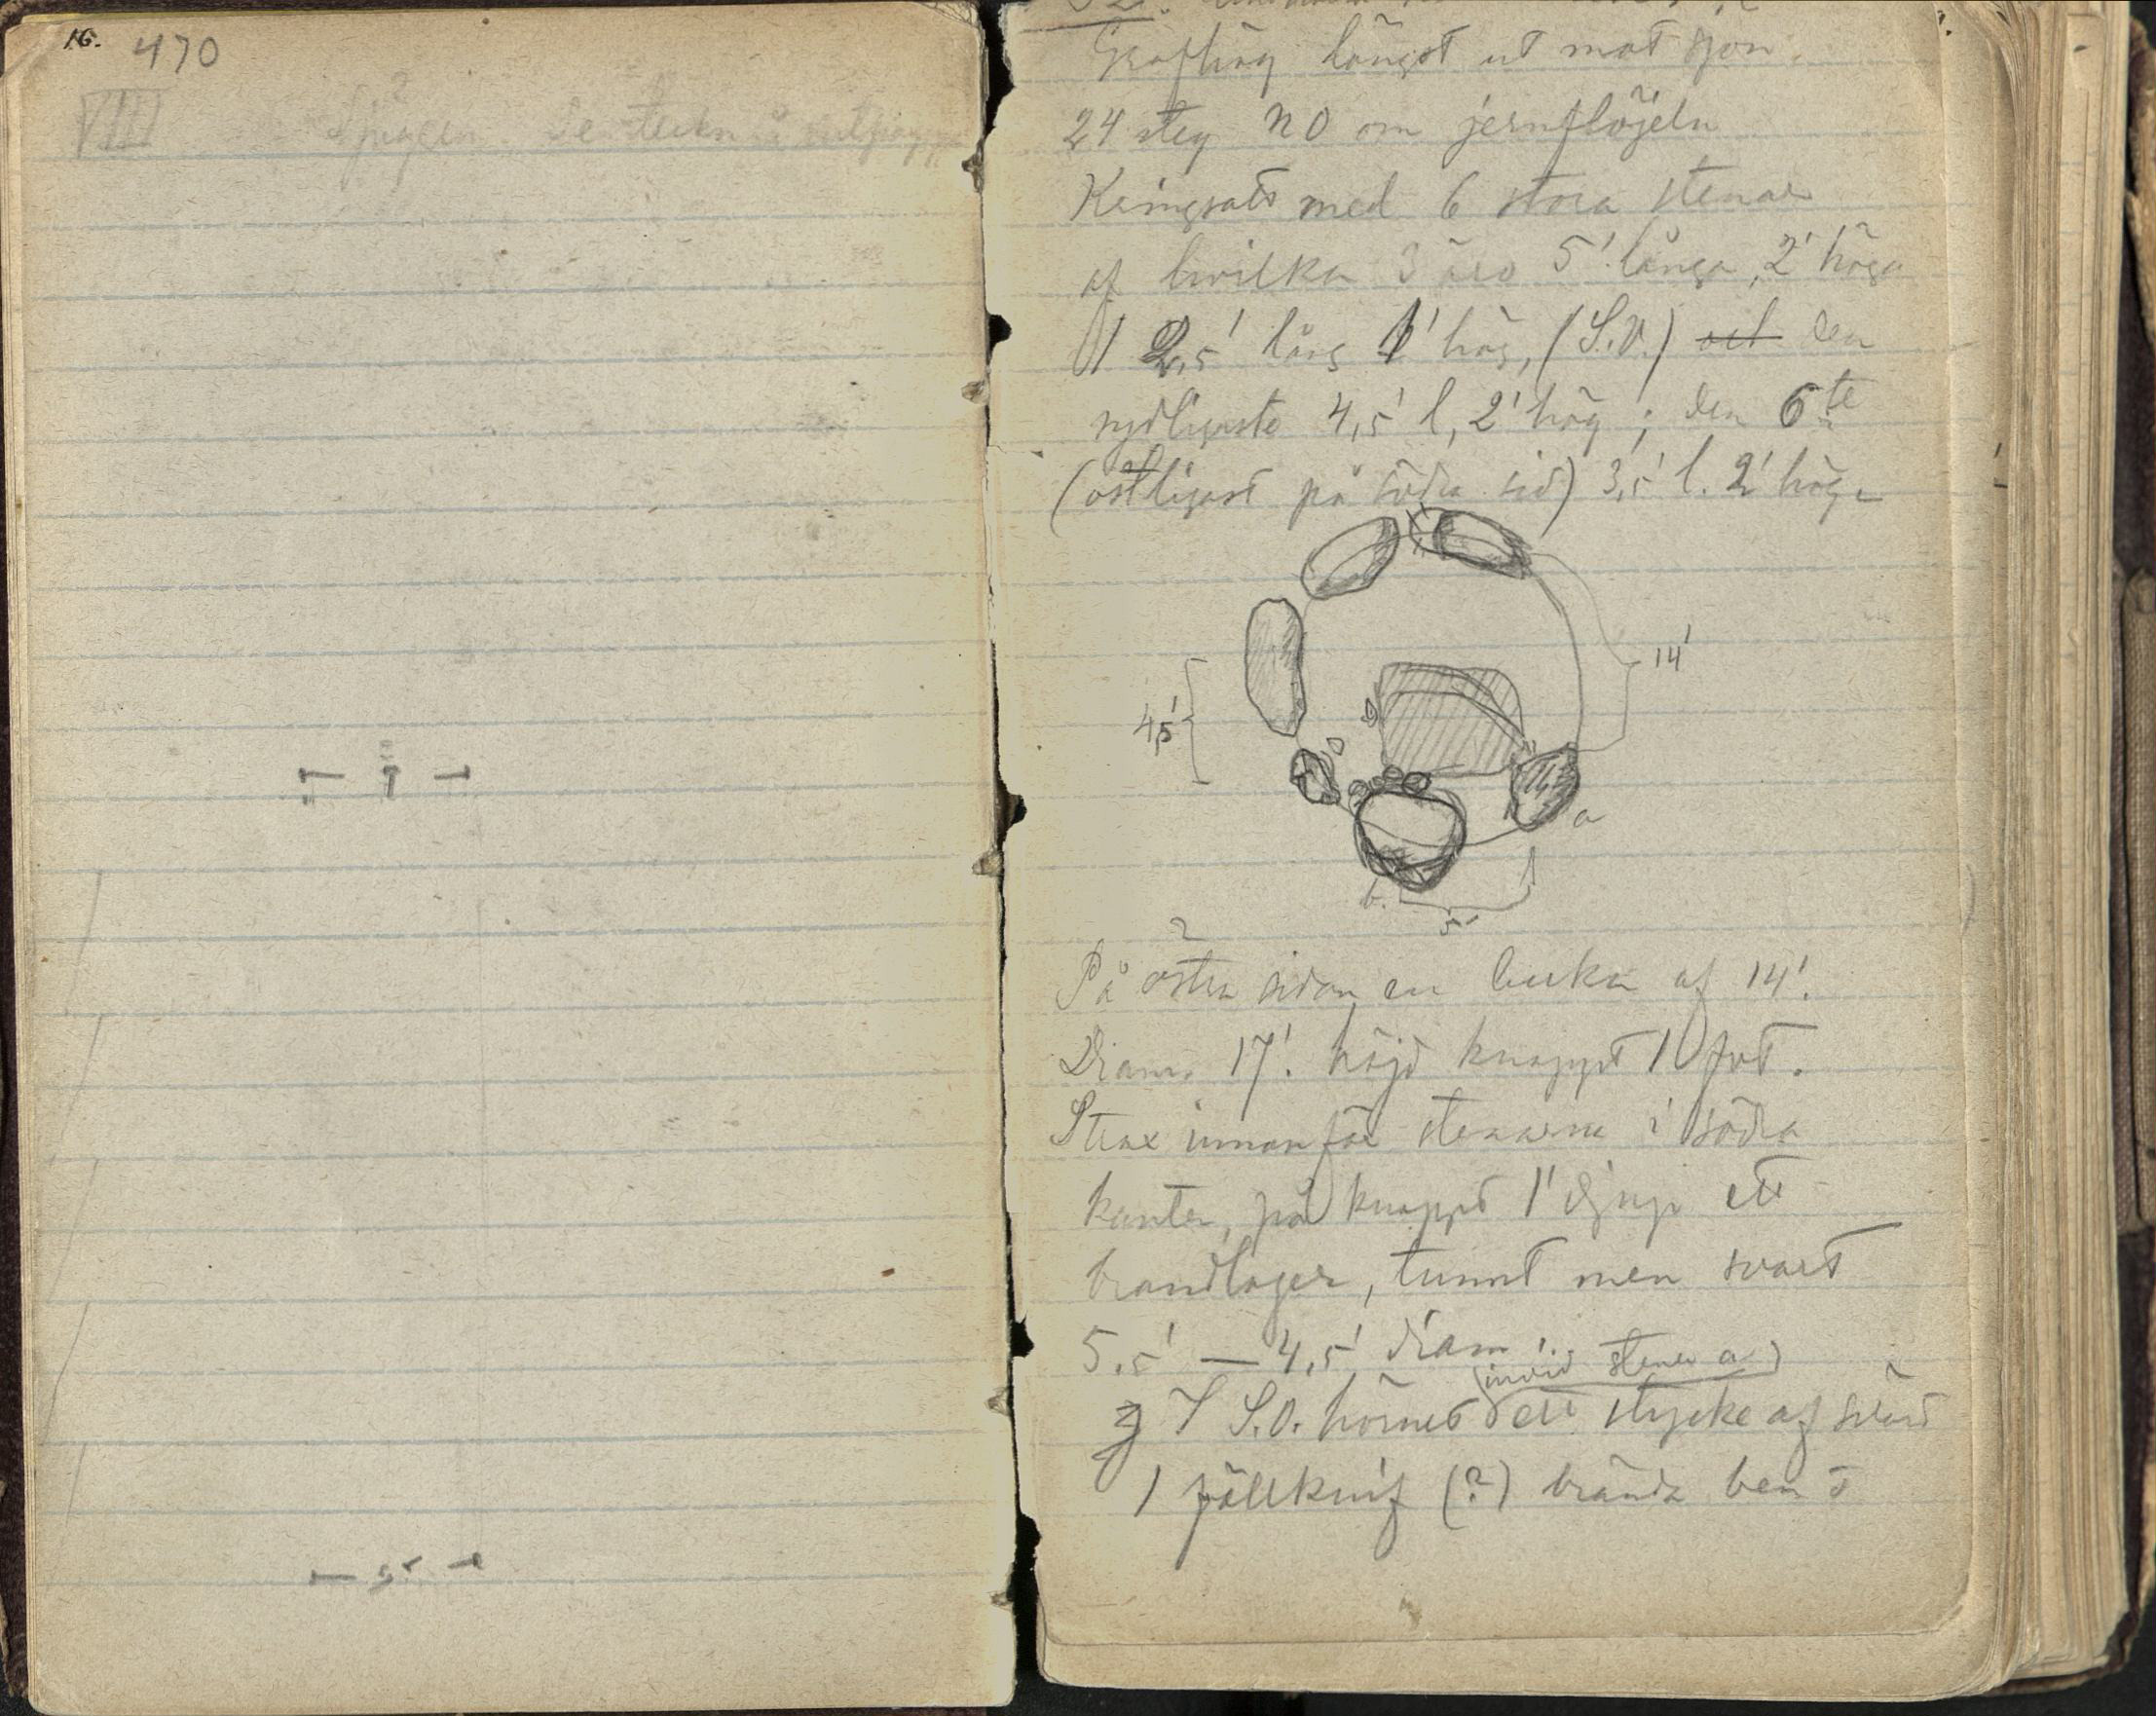 16. 470
VIII
Grafhög längst ut mot sjön.
24 steg NO om jernflöjeln
Kringsatt med 6 stora stenar
af hvilka 3 äro 5' långa, 2' höga
1 2,5' lång 1' hög, (S.V.) och den
sydligaste 4,5' l, 2' hög; den 6te
(östligast på södra sid) 3,5' l. 2' hög.
14'
4,5'
a
b.
5'
På östra sidan en lucka af 14'.
Diam. 17'. höjd knappt 1 fot.
Strax innanför stenarna i södra
kanten, på knappt 1' djup ett
brandlager, tunnt men svart
5,5' — 4,5' diam
(invid sten a)
I S.O. hörnet ett stycke af svärd
1 fällknif (?) brända ben o